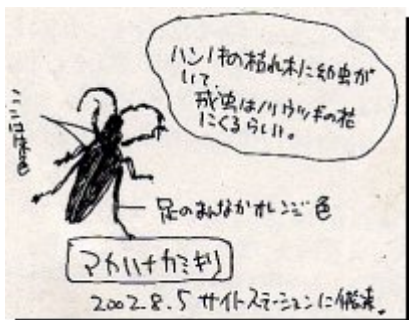 ハンノキの枯れ木に幼虫が
いて
成虫はノリウツギの花
にくるらしい。
足のまんなかオレンジ色
マルハナカミキリ
2002.8.5 サイトステーションに飛来。